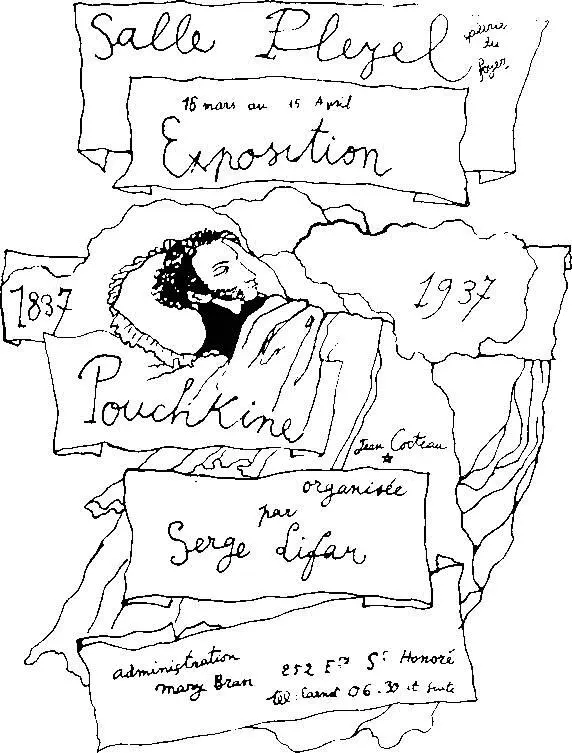 Salle Pleyel
du
foyer
16 mars au 15 Avril
Exposition
1837
1937
Pouchkine
Jean Cocteau
organisée
par
Serge Lifar
administration
Mary Bran
252 Fg St Honoré
tél. Carnot 06.30 et suite